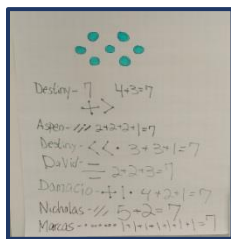 Destiny- 7 4+3=7
Aspen- 2+2+2+1=7
Destiny- 3+3+1=7
David- 2+2+3=7
Damacio- 4+2+1=7
Nicholas- 5+2=7
Marcas- 1+1+1+1+1+1+1=7